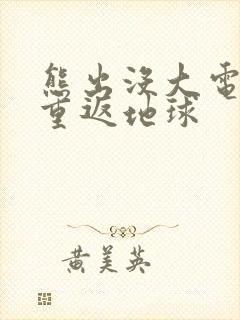 熊出没大电
重返地球
黄美英